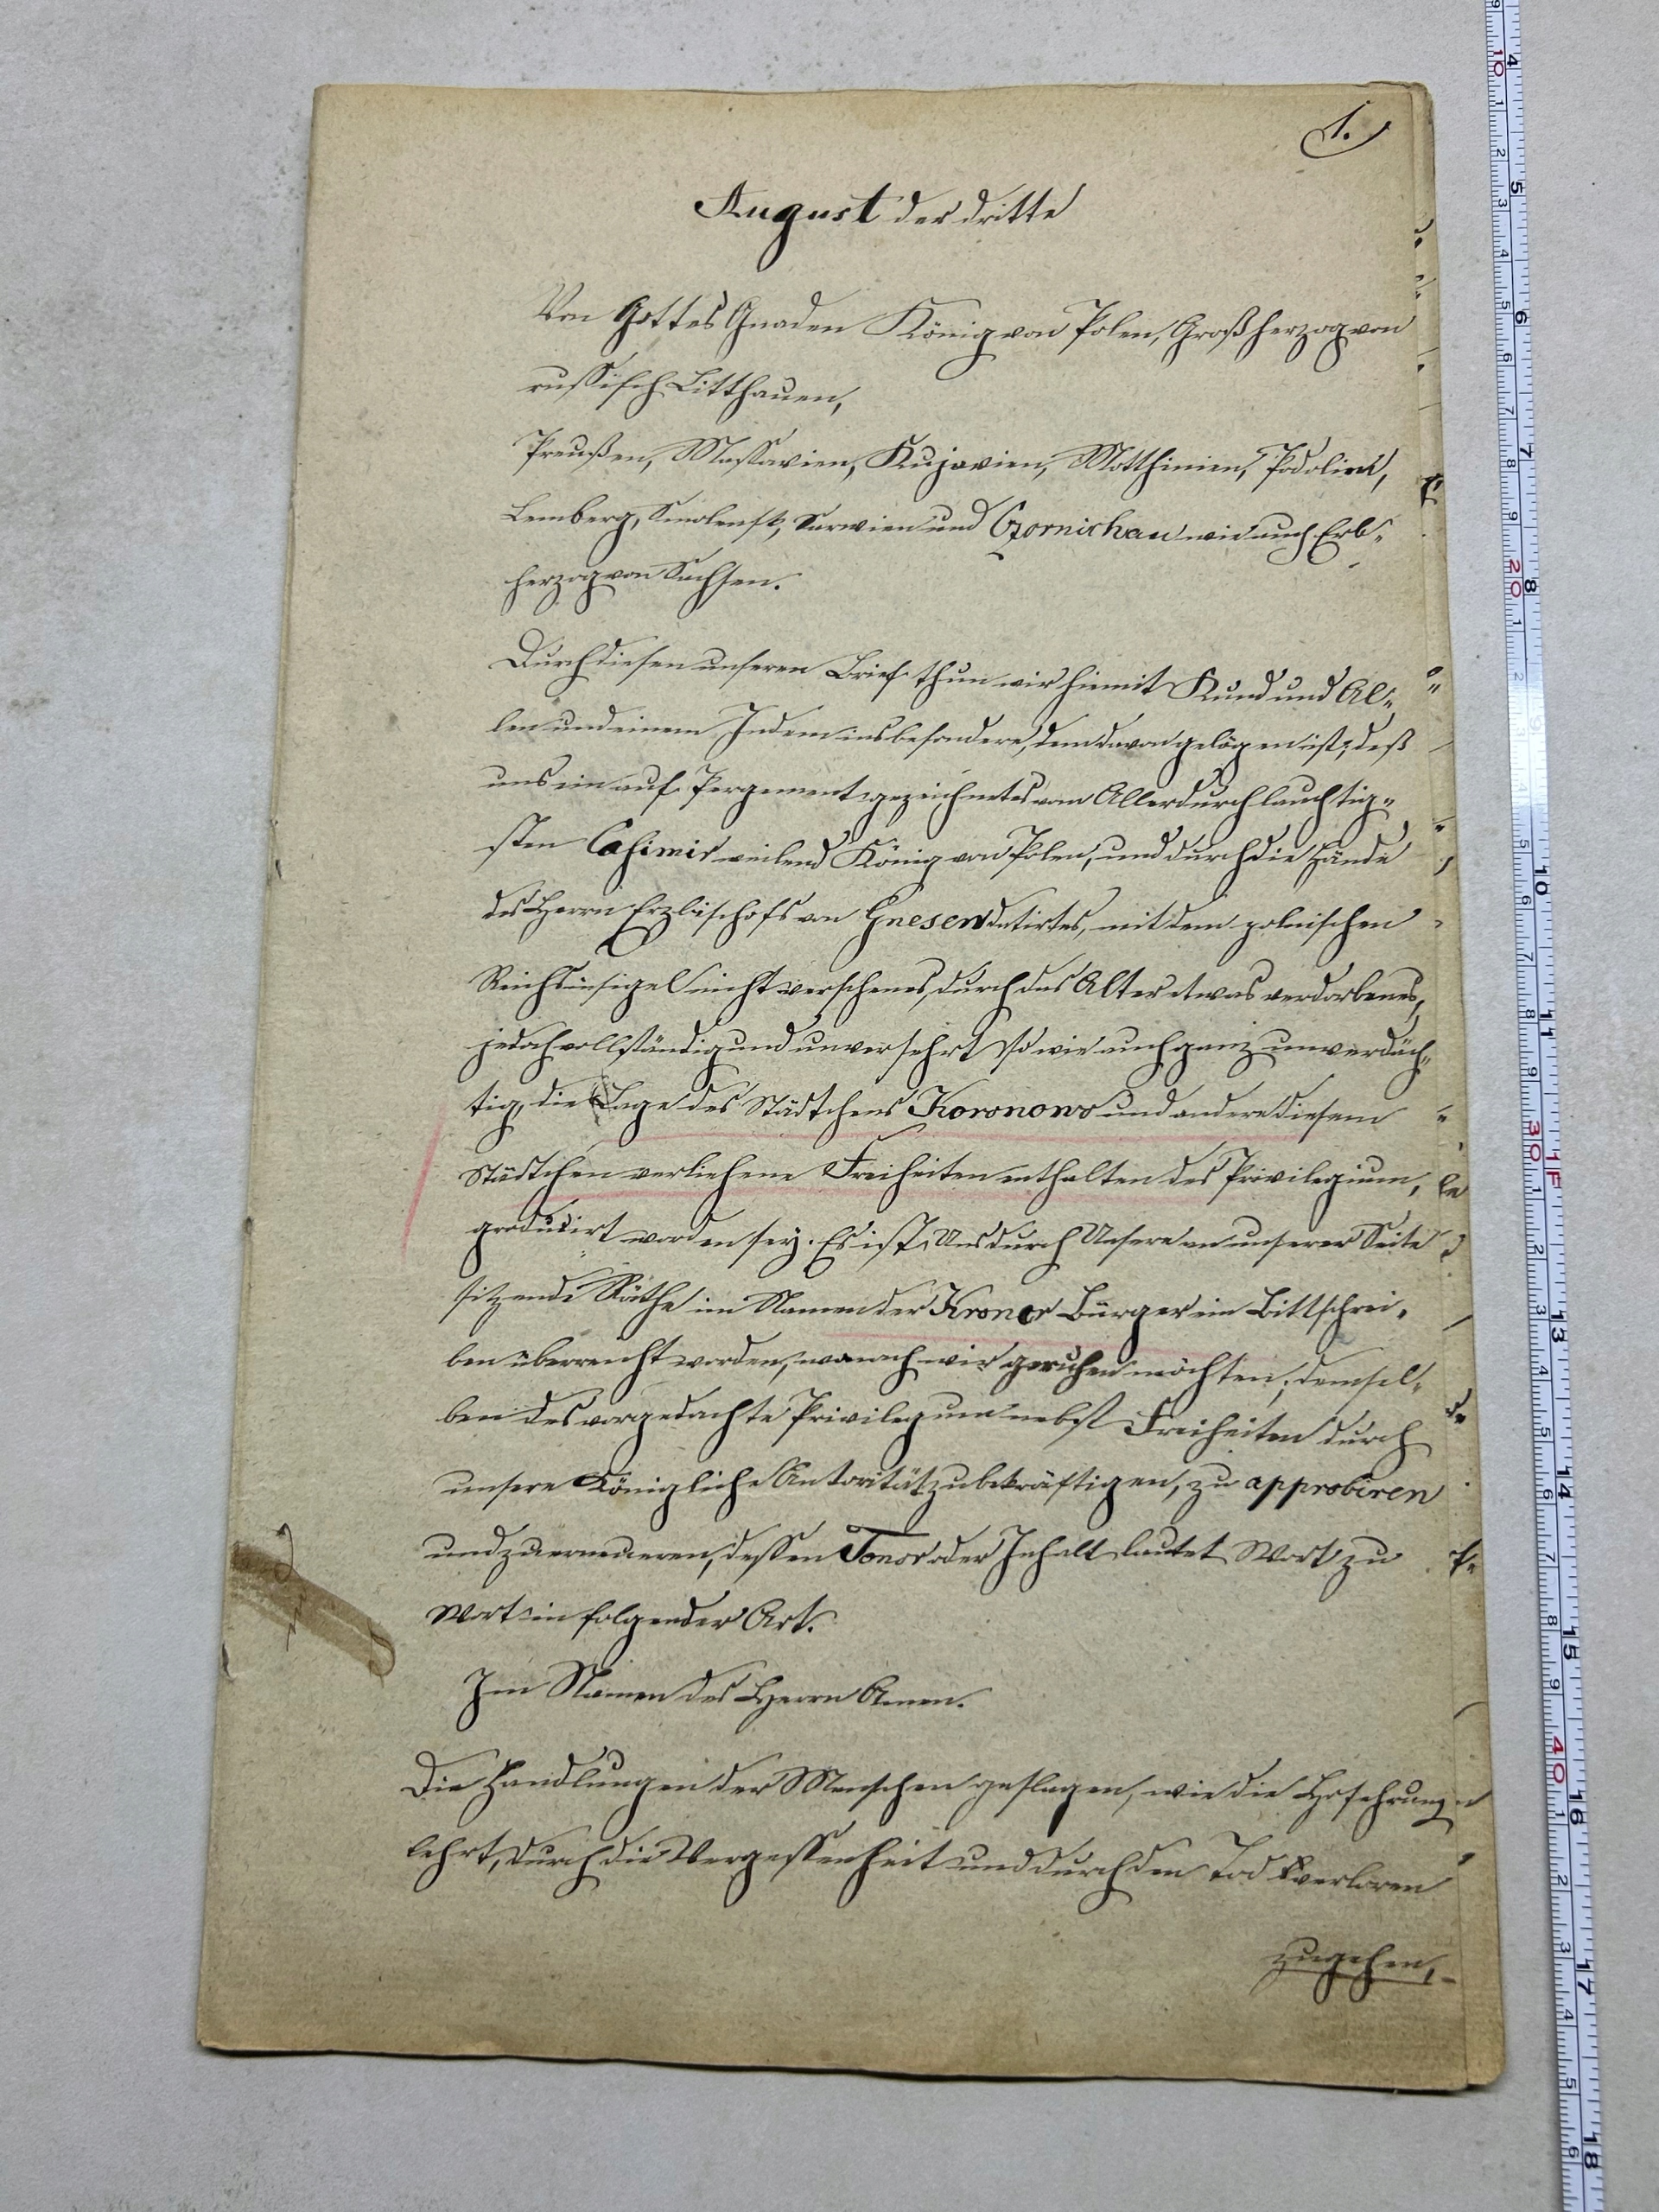 1.
August der dritte
Von Gottes Gnaden König von Polen, Großherzog von
russisch Litthauen,
Preußen, Massavien, Kujavien, Motthinien, Podolien,
Lemberg, Smolensk, Sarwien und Czornichau wie auch Erb-
herzog von Sachsen.
Durch diesen unseren Brief thun wir hiemit Kund und Al-
len und einem Jedem insbesondere, dem davon gelögen ist, daß
uns ein auf Pergament gezeichnetes vom Allerdurchlauchtig-
sten Casimir weilend König von Polen, und durch die Hände
des Herrn Erzbischofs von Gnesen datirtes, mit dem polnischen
Reichsinsigel nicht versehenes, durch das Alter etwas verdorbenes,
jedoch vollständig und unversehrt so wie auch ganz unverdäch-
tig, die Lage des Städtchens Koronowo und andere diesem
Städtchen verliehene Freiheiten enthalten des Privilegium,
produzirt worden sey. Es ist Uns durch Unsere an unserer Seite
sitzende Räthe im Namen der Kroner Bürger ein Bittschrei-
ben überreicht worden, wonach wir geruhen möchten, demsel-
ben das vorgedachte Privilegium nebst Freiheiten durch
unsere Königliche Autorität zu bekräftigen, zu approbiren
und zu erneueren, dessen Tenor oder Inhalt lautet Wort zu
Wort in folgender Art.
Im Namen des Herrn Amen.
Die Handlungen der Menschen pflegen, wie die Erfahrung
lehrt, durch die Vergessenheit und durch den Tod verloren
zugehen,